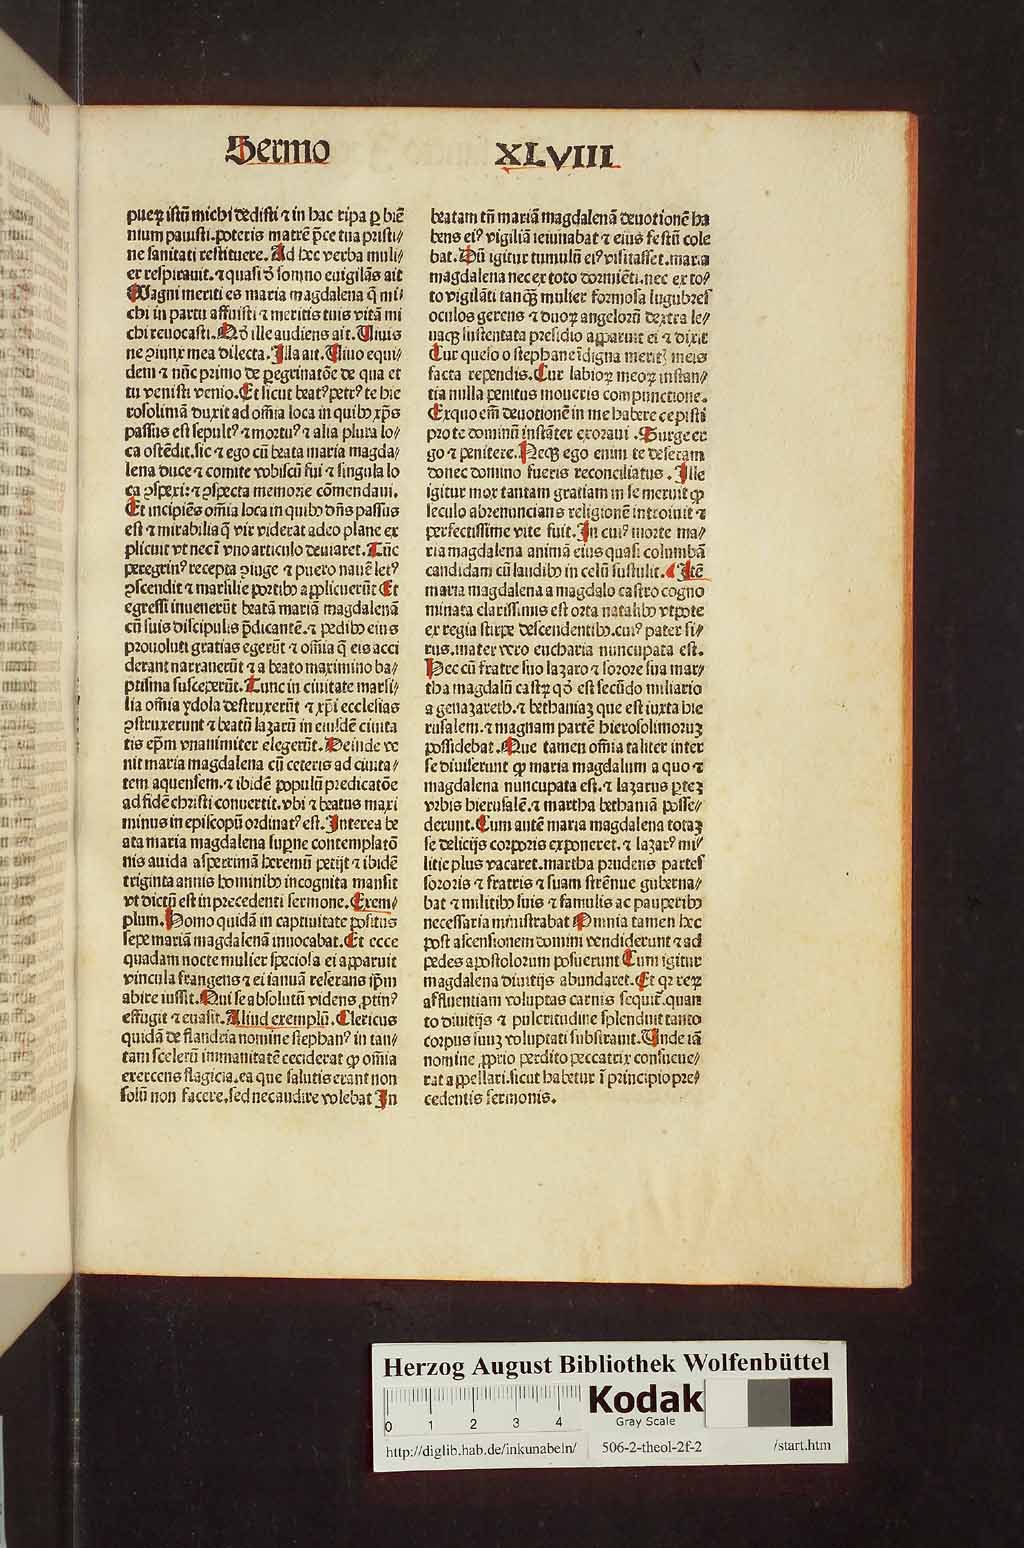 Sermo XLVIII
pueꝝ istū michi dedisti ⁊ in hac ripa ꝑ biē
nium pauisti. poteris matrē p̄ce tua pristi⸗
ne sanitati restituere. Ad hec verba muli⸗
er respirauit. ⁊ quasi d̄ somno euigilās ait
Magni meriti es maria magdalena q̄ mi⸗
chi in partu affuisti ⁊ meritis tuis vitā mi
chi reuocasti. Qd̄ ille audiens ait. Viuis
ne ꝯiunx mea dilecta. Illa ait. Viuo equi⸗
dem ⁊ nūc primo de ꝑegrinatōe de qua et
tu venisti venio. Et sicut beatꝰ petrꝰ te hie
rosolimā duxit ad om̄ia loca in quibꝫ xp̄s
passus est sepultꝰ ⁊ mortuꝰ ⁊ alia plura lo⸗
ca ostēdit. sic ⁊ ego cū beata maria magda⸗
lena duce ⁊ comite vobiscū fui ⁊ singula lo
ca ꝯspexi: ⁊ ꝯspecta memorie cōmendaui.
Et incipiēs om̄ia loca in quibꝫ dn̄s passus
est ⁊ mirabilia q̄ vir viderat adeo plane ex
plicuit vt nec ī vno articulo deuiaret. Tūc
peregrinꝰ recepta ꝯiuge ⁊ puero nauē letꝰ
ꝯscendit ⁊ marsilie portibꝫ applicuerūt Et
egressi inuenerūt beatā mariā magdalenā
cū suis discipulis p̄dicantē. ⁊ pedibꝫ eius
prouoluti gratias egerūt ⁊ om̄ia q̄ eis acci
derant narrauerūt ⁊ a beato maximino ba⸗
ptisma susceperūt. Tunc in ciuitate marsi⸗
lia om̄ia ydola destruxerūt ⁊ xp̄i ecclesias
ꝯstruxerunt ⁊ beatū lazarū in eiusdē ciuita
tis ep̄m vnanimiter elegerūt. Deinde ve
nit maria magdalena cū ceteris ad ciuita⸗
tem aquensem. ⁊ ibidē populū predicatōe
ad fidē christi conuertit. vbi ⁊ beatus maxi
minus in episcopū ordinatꝰ est. Interea be
ata maria magdalena suꝑne contemplatō
nis auida asperrimā heremū petijt ⁊ ibidē
triginta annis hominibꝫ incognita mansit
vt dictū est in precedenti sermone. Exem⸗
plum. Homo quidā in captiuitate positus
sepe mariā magdalenā inuocabat. Et ecce
quadam nocte mulier speciosa ei apparuit
vincula frangens ⁊ ei ianuā reserans ip̄m
abire iussit. Qui se absolutū videns ꝓtinꝰ
effugit ⁊ euasit. Aliud exemplū. Clericus
quidā de flandria nomine stephanꝰ in tan⸗
tam scelerū immanitatē ceciderat ꝙ om̄ia
exercens flagicia. ea que salutis erant non
solū non facere. sed nec audire volebat In
beatam tn̄ mariā magdalenā deuotionē ha
bens eiꝰ vigiliā ieiunabat ⁊ eius festū cole
bat. Dū igitur tumulū eiꝰ visitasset. maria
magdalena nec ex toto dormiēti. nec ex to⸗
to vigilāti tanqꝫ mulier formosa lugubres
oculos gerens ⁊ duoꝝ angeloꝝ dextra le⸗
uaqꝫ sustentata presidio apparuit ei ⁊ dixit
Cur queso o stephane īdigna meritꝭ meis
facta rependis. Cur labioꝝ meoꝝ instan⸗
tia nulla penitus moueris compunctione.
Exquo em̄ deuotionē in me habere cepisti
pro te dominū instāter exoraui. Surge er
go ⁊ penitere. Necqꝫ ego enim te deseram
donec domino fueris reconciliatus. Ille
igitur mox tantam gratiam in se meruit ꝙ
seculo abrenuncians religionē introiuit ⁊
perfectissime vite fuit. In cuiꝰ morte ma⸗
ria magdalena animā eius quasi columbā
candidam cū laudibꝫ in celū sustulit. Itē
maria magdalena a magdalo castro cogno
minata clarissimis est orta natalibꝫ vtpote
ex regia stirpe descendentibꝫ. cuiꝰ pater si⸗
rus. mater vero eucharia nuncupata est.
Hec cū fratre suo lazaro ⁊ sorore sua mar⸗
tha magdalū castꝝ qd̄ est secūdo miliario
a genazareth. ⁊ bethaniaꝫ que est iuxta hie
rusalem. ⁊ magnam partē hierosolimoruꝫ
possidebat. Que tamen om̄ia taliter inter
se diuiserunt ꝙ maria magdalum a quo ⁊
magdalena nuncupata est. ⁊ lazarus ꝑteꝫ
vrbis hierusalē. ⁊ martha bethaniā posse⸗
derunt. Cum autē maria magdalena totaꝫ
se delicijs corporis exponeret. ⁊ lazarꝰ mi⸗
litie plus vacaret. martha prudens partes
sororis ⁊ fratris ⁊ suam strēnue guberna⸗
bat ⁊ militibꝫ suis ⁊ famulis ac pauperibꝫ
necessaria ministrabat Omnia tamen hec
post ascensionem domini vendiderunt ⁊ ad
pedes apostolorum posuerunt Cum igitur
magdalena diuitijs abundaret. Et qꝛ reꝝ
affluentiam voluptas carnis sequit̄. quan
to diuitijs ⁊ pulcritudine splenduit tanto
corpus suuꝫ voluptati substrauit. Unde iā
nomine ꝓprio perdito peccatrix consueue⸗
rat appellari. sicut habetur ī principio pre⸗
cedentis sermonis.
Herzog August Bibliothek Wolfenbüttel
Kodak
Gray Scale
0 1 2 3 4
http://diglib.hab.de/inkunabeln/ 506-2-theol-2f-2 /start.htm